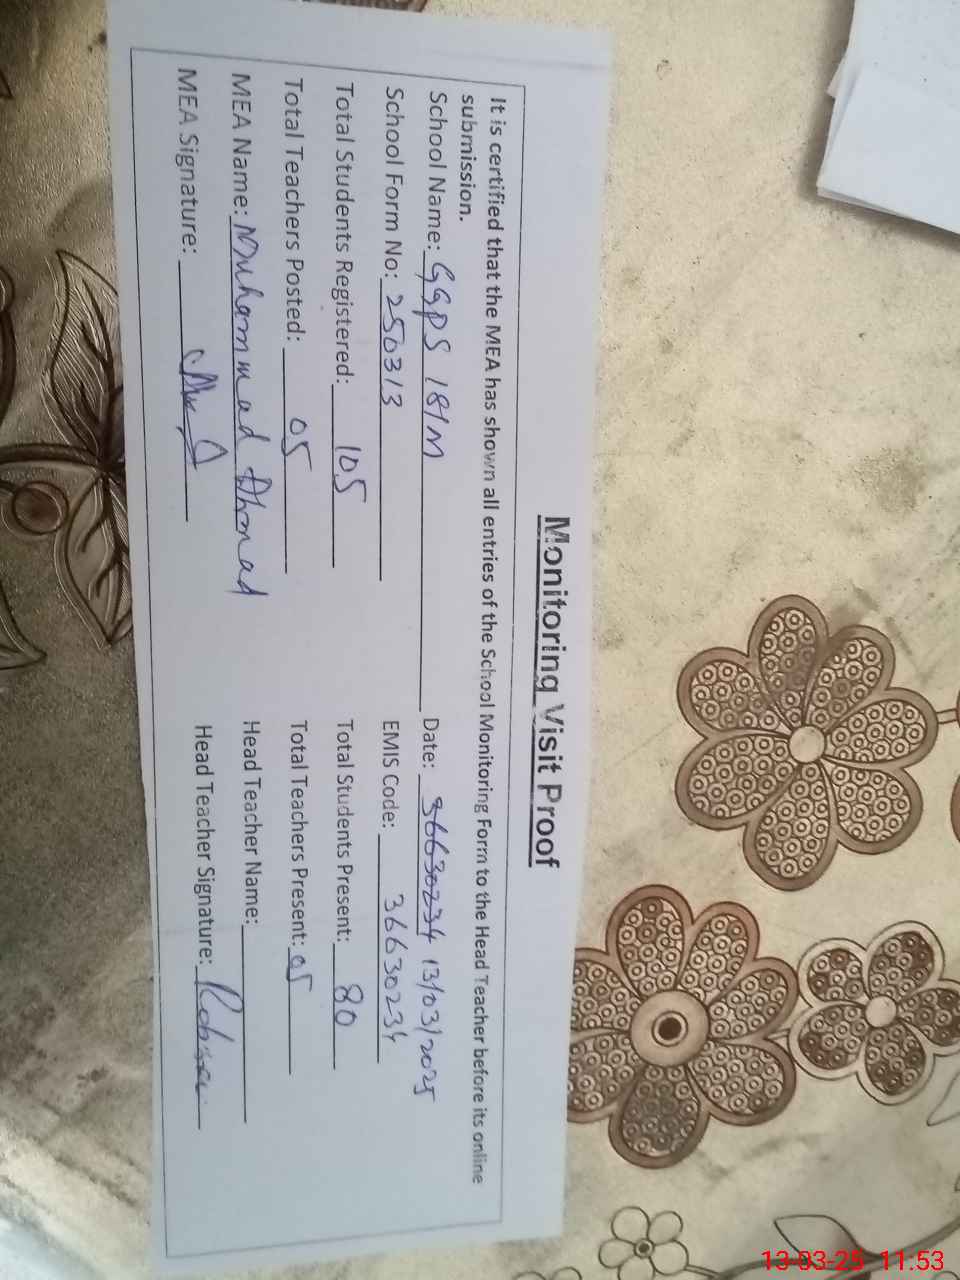 Monitoring Visit Proof
It is certified that the MEA has shown all entries of the School Monitoring Form to the Head Teacher before its online
submission.
School Name: GGPS 181M Date: 36630234 13/03/2025
School Form No: 250313 EMIS Code: 36630234
Total Students Registered: 105 Total Students Present: 80
Total Teachers Posted: 05 Total Teachers Present: 05
MEA Name: Muhammad Ahmad Head Teacher Name:
MEA Signature: Head Teacher Signature:
13-03-25 11:53